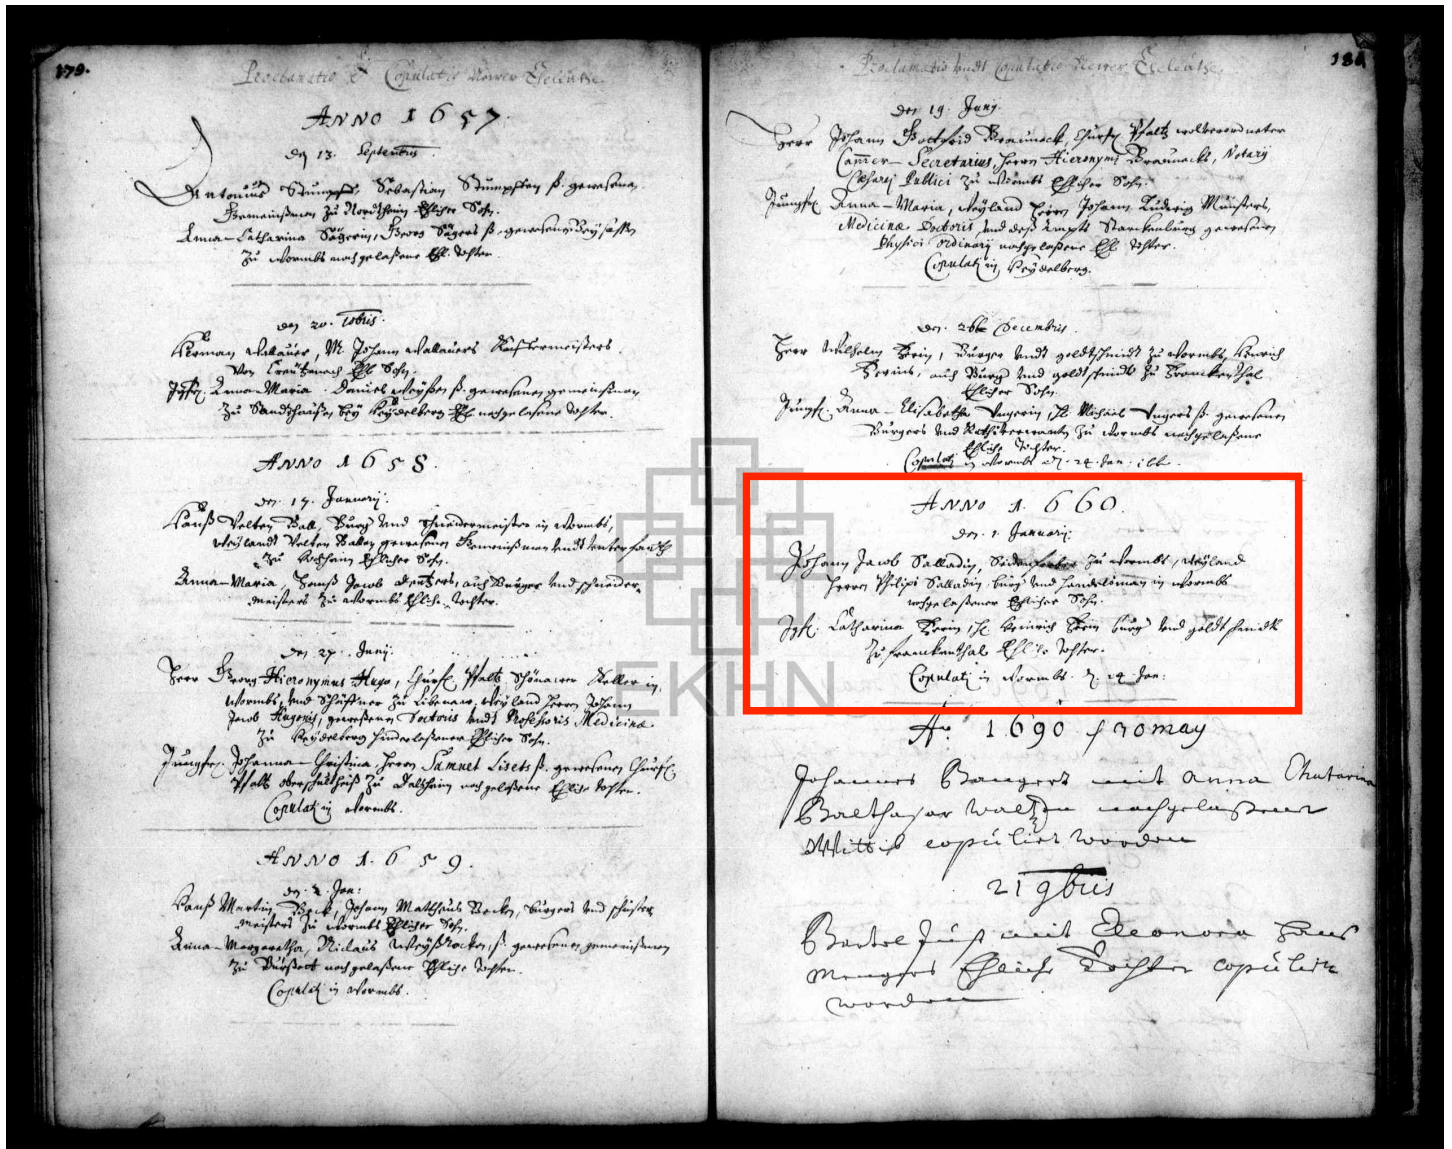 179.
Proclamatio & Copulatio Newer Eheleuthe.
ANNO 1657.
den 13. Septembris.
Antonius Stumpff, Sebastian Stumpffen s. gewesenen
Gemeinßman zu Nordheim Ehlicher Sohn.
Anna-Catharina Sägerin, Georg Sägers s. gewesenen Beysassen
zu Wormbs nachgelaßene Ehl. Tochter.
den 20. 10bris.
Herman Wallauer, M. Johann Wallauers
von Creutzenach Ehl Sohn.
Jgfr. Anna-Maria. Daniel s. gewesenen gemeinßman
zu Sandthaußen bey Heydelberg Ehl nachgelaßene Tochter.
ANNO 1658.
den 17. Januarij.
Hanß Velten Ball, Burger vnd Schneidermeister in Wormbs,
Weylandt Velten Ballen gewesenen Gemeinßman vndt
zu Ehlicher Sohn.
Anna-Maria, Hanß Jacob auch Burger vnd Schneider-
meisters zu Wormbs Ehliche Tochter.
den 27. Junij.
Herr Georg Hieronymus Hugo, Churf. Pfaltz Schönawer Keller in
Wormbs, vnd Schaffner zu Libenaw, Weyland Herrn Johann
Jacob Hugonis, gewesenen Doctoris vndt Professoris Medicinæ
zu Heydelberg hinderlaßener Ehlicher Sohn.
Jungfr. Johanna-Christina, Herrn Samuel Lisets s. gewesenen Churf.
Pfaltz oberschultheiß zu nachgelaßene Ehliche Tochter.
Copulati in Wormbs.
ANNO 1659.
den 2. Jan:
Hanß Martin Beck, Johann Matthäus Becken, Burgers vnd Schuster
meisters zu Wormbs Ehlicher Sohn.
Anna-Margaretha, Niclaus s. gewesenen gemeinßman
zu nachgelaßene Ehliche Tochter.
Copulati in Wormbs.
180.
Proclamatio vndt Copulatio Newer Eheleuthe.
den 19. Junij.
Herr Johann Gottfrid Brauneck, Churf. Pfaltz wolverordneter
Cammer-Secretarius, Herrn Hieronymi Braunecks, Notarij
Cæsarij Publici zu Wormbs Ehlicher Sohn.
Jungfr. Anna-Maria, Weyland Herrn Johann Ludwig Münsters,
Medicinæ Doctoris, vnd deß Ampts Starckenburg gewesenen
Physici ordinarij nachgelaßene Ehl. Tochter.
Copulati in Heydelberg.
den. 26 Decembris.
Herr Wilhelm Serin, Burger vndt goldtschmidt zu Wormbs, Henrich
Serins, auch Burger vnd goldtschmidt zu Franckenthal
Ehlicher Sohn.
Jungfr. Anna-Elisabetha Vngerin, H. Michael Vngers s. gewesenen
Burgers vnd Rathsverwanten zu Wormbs nachgelaßene
Ehliche Tochter.
Copulati in Wormbs d. 24. Jan.
ANNO 1.660.
den. 1. Januarij.
Johann Jacob Salladin, zu Wormbs, Weyland
Herrn Philips Salladin, burger vnd Handelsman in Wormbs
nachgelaßener Ehlicher Sohn.
Jgfr. Catharina Serin, H. Heinrich Serin burger vnd goldtschmidt
zu Franckenthal Ehliche Tochter.
Copulati in Wormbs. d. 24 Jan:
EKHN
Ao 1690 may
Johannes Bangert mit Anna Chatarina
Balthasar nachgelaßener
Wittib copuliert worden
21 9bris
Bartel Just mit Eleonora Hans
Mengers Ehliche Tochter copulirt
worden